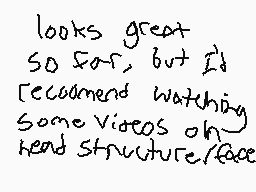 looks great
so far, but I'd
recoomend watching
some videos on
head structure/face